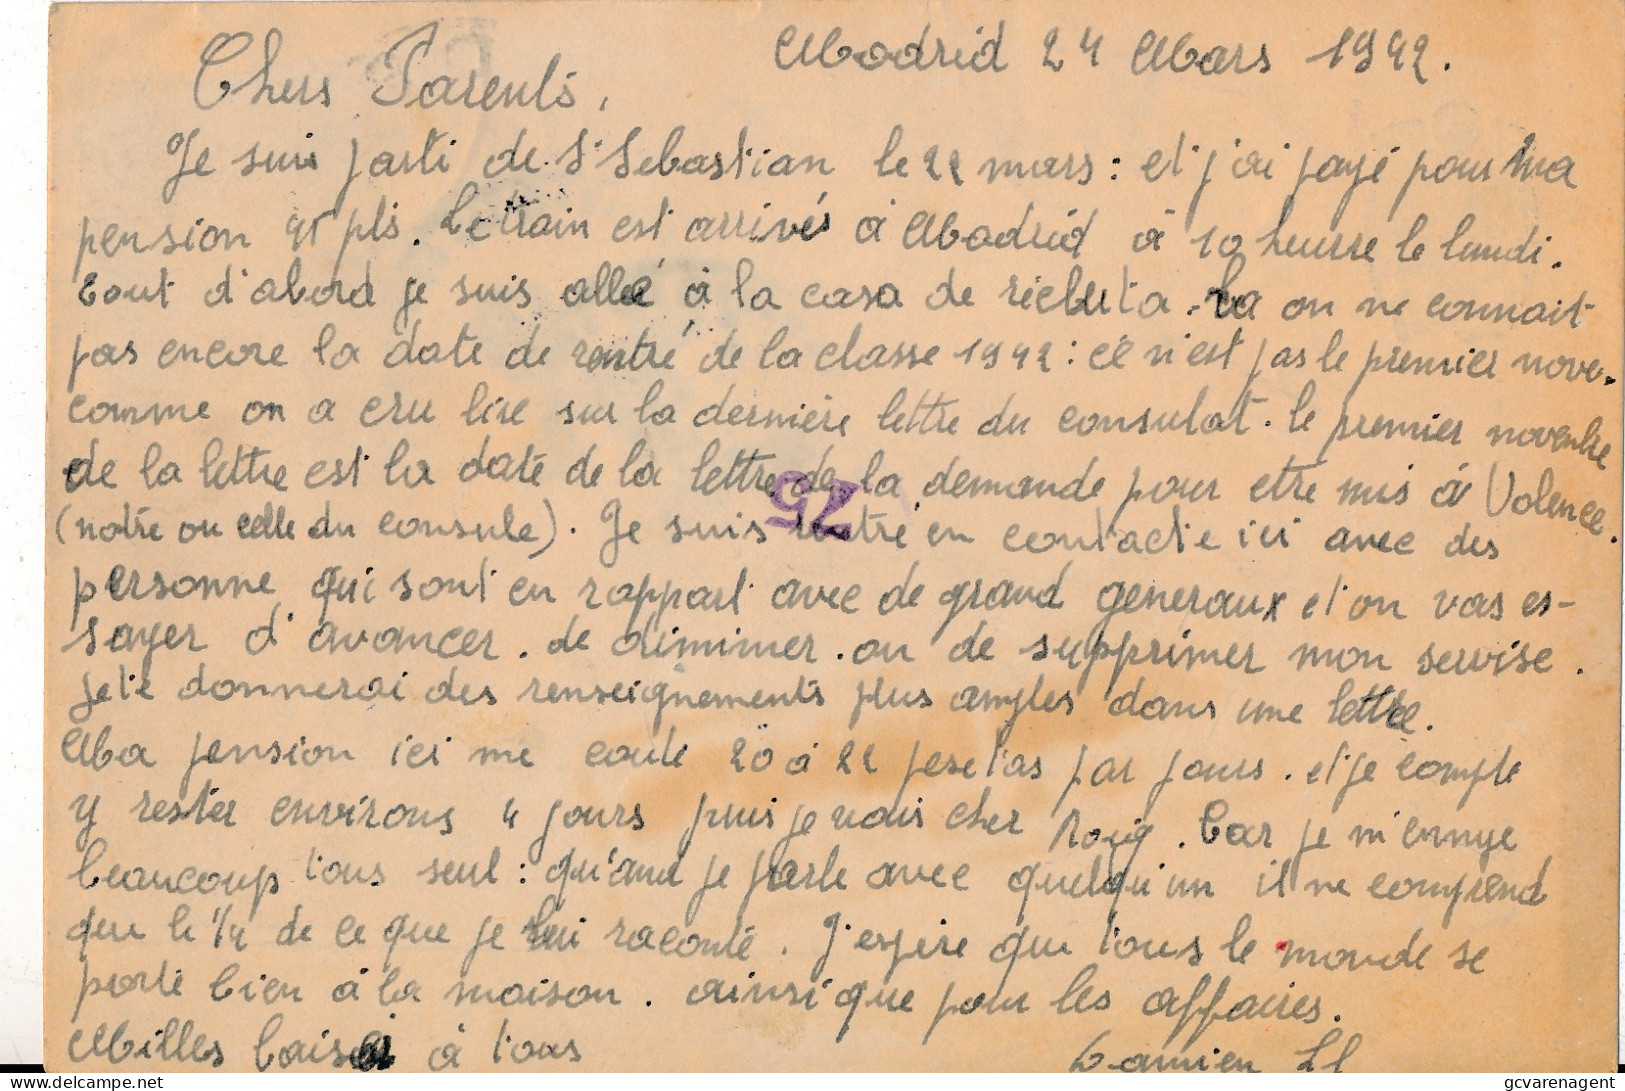 Madrid 24 Mars 1942.
Chers Parents,
Je suis parti de St Sebastian le 22 mars : et j'ai payé pour ma
pension 45 pts. Le train est arrivés à Madrid à 10 heurre le lundi.
Tout d'abord je suis allé à la casa de recluta. La on ne connait
pas encore la date de rentré de la classe 1942 : ce n'est pas le premier nove-
comme on a cru lire sur la dernière lettre du consulat. le premier novembre
de la lettre est la date de la lettre de la demande pour etre mis à Valence.
75
(notre ou celle du consule). Je suis rentré en contacte ici avec des
personne qui sont en rapport avec de grand generaux et on vas es-
sayer d'avancer. de diminuer. ou de supprimer mon servise.
Je te donnerai des renseignements plus amples dans une lettre.
Ma pension ici me coute 20 à 22 pesetas par jours. et je compte
y rester environs 4 jours puis je vais cher Roig. Car je m'ennuye
beaucoup tous seul : qu'and je parle avec quelqu'un il ne comprend
que le 1/4 de ce que je lui raconte. J'espère que tous le monde se
porte bien à la maison. ainsi que pour les affaires.
Milles baiser à tous
Damien Ll
gcvarenagent